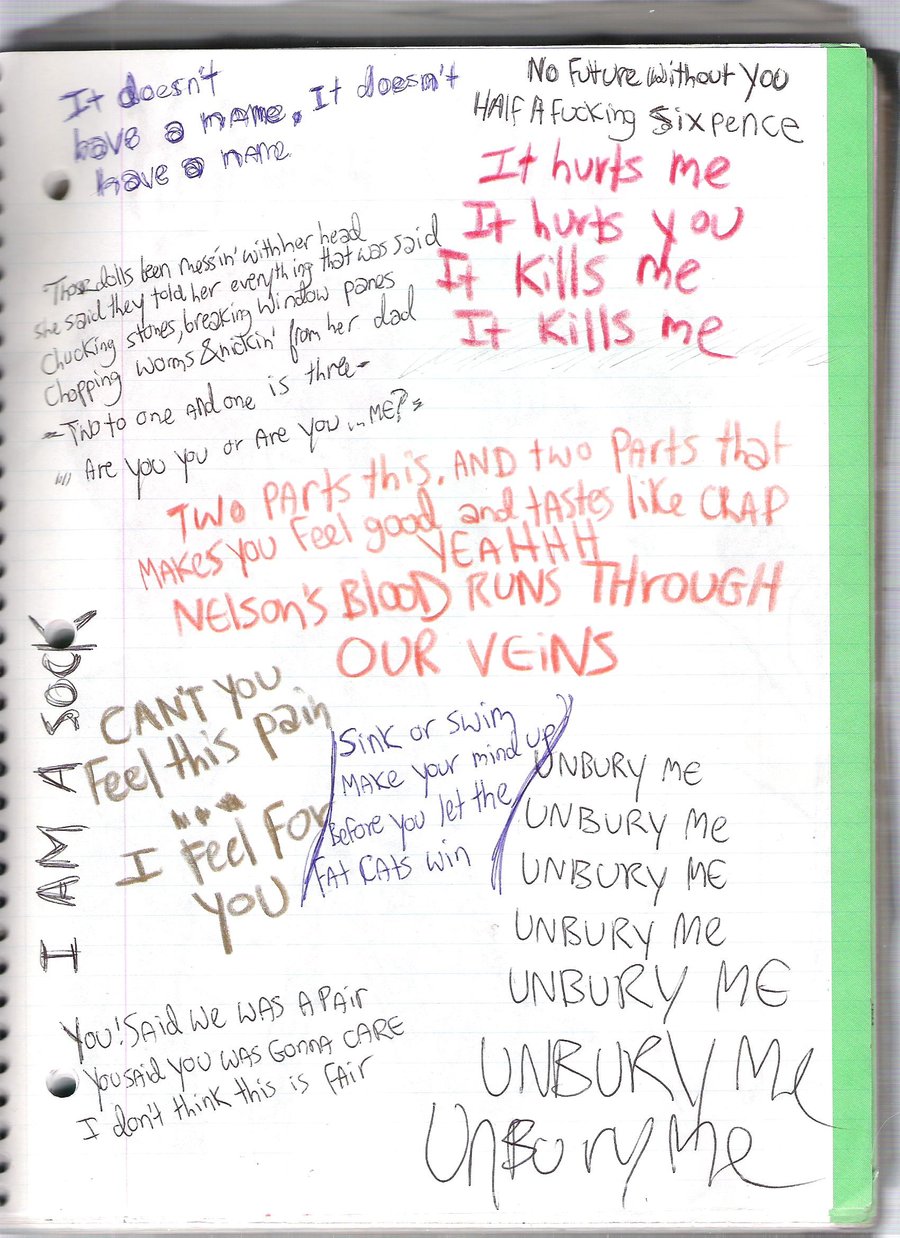 It doesn't
have a name, It doesn't
have a name
No Future Without You
HALF A Fucking Sixpence
It hurts me
It hurts you
It Kills me
It Kills me
Those dolls been messin' with her head
she said they told her everything that was said
Chucking stones, breaking window panes
Chopping worms & nickin' from her dad
Two to one and one is three
Are you you or Are you ... ME?
Two Parts this, AND two Parts that
Makes you Feel good and tastes like CRAP
YEAHHH
NELSON'S BLOOD RUNS THROUGH
OUR VEINS
I AM A SOCK
CAN'T YOU
Feel this pain
...
I Feel For
YOU
Sink or swim
Make your mind up
Before you let the
FAT CATS win
UNBURY ME
UNBURY ME
UNBURY ME
UNBURY ME
UNBURY ME
UNBURY Me
UnBury Me
You! SAID WE WAS A PAIR
You SAID YOU WAS GONNA CARE
I don't think this is FAIR